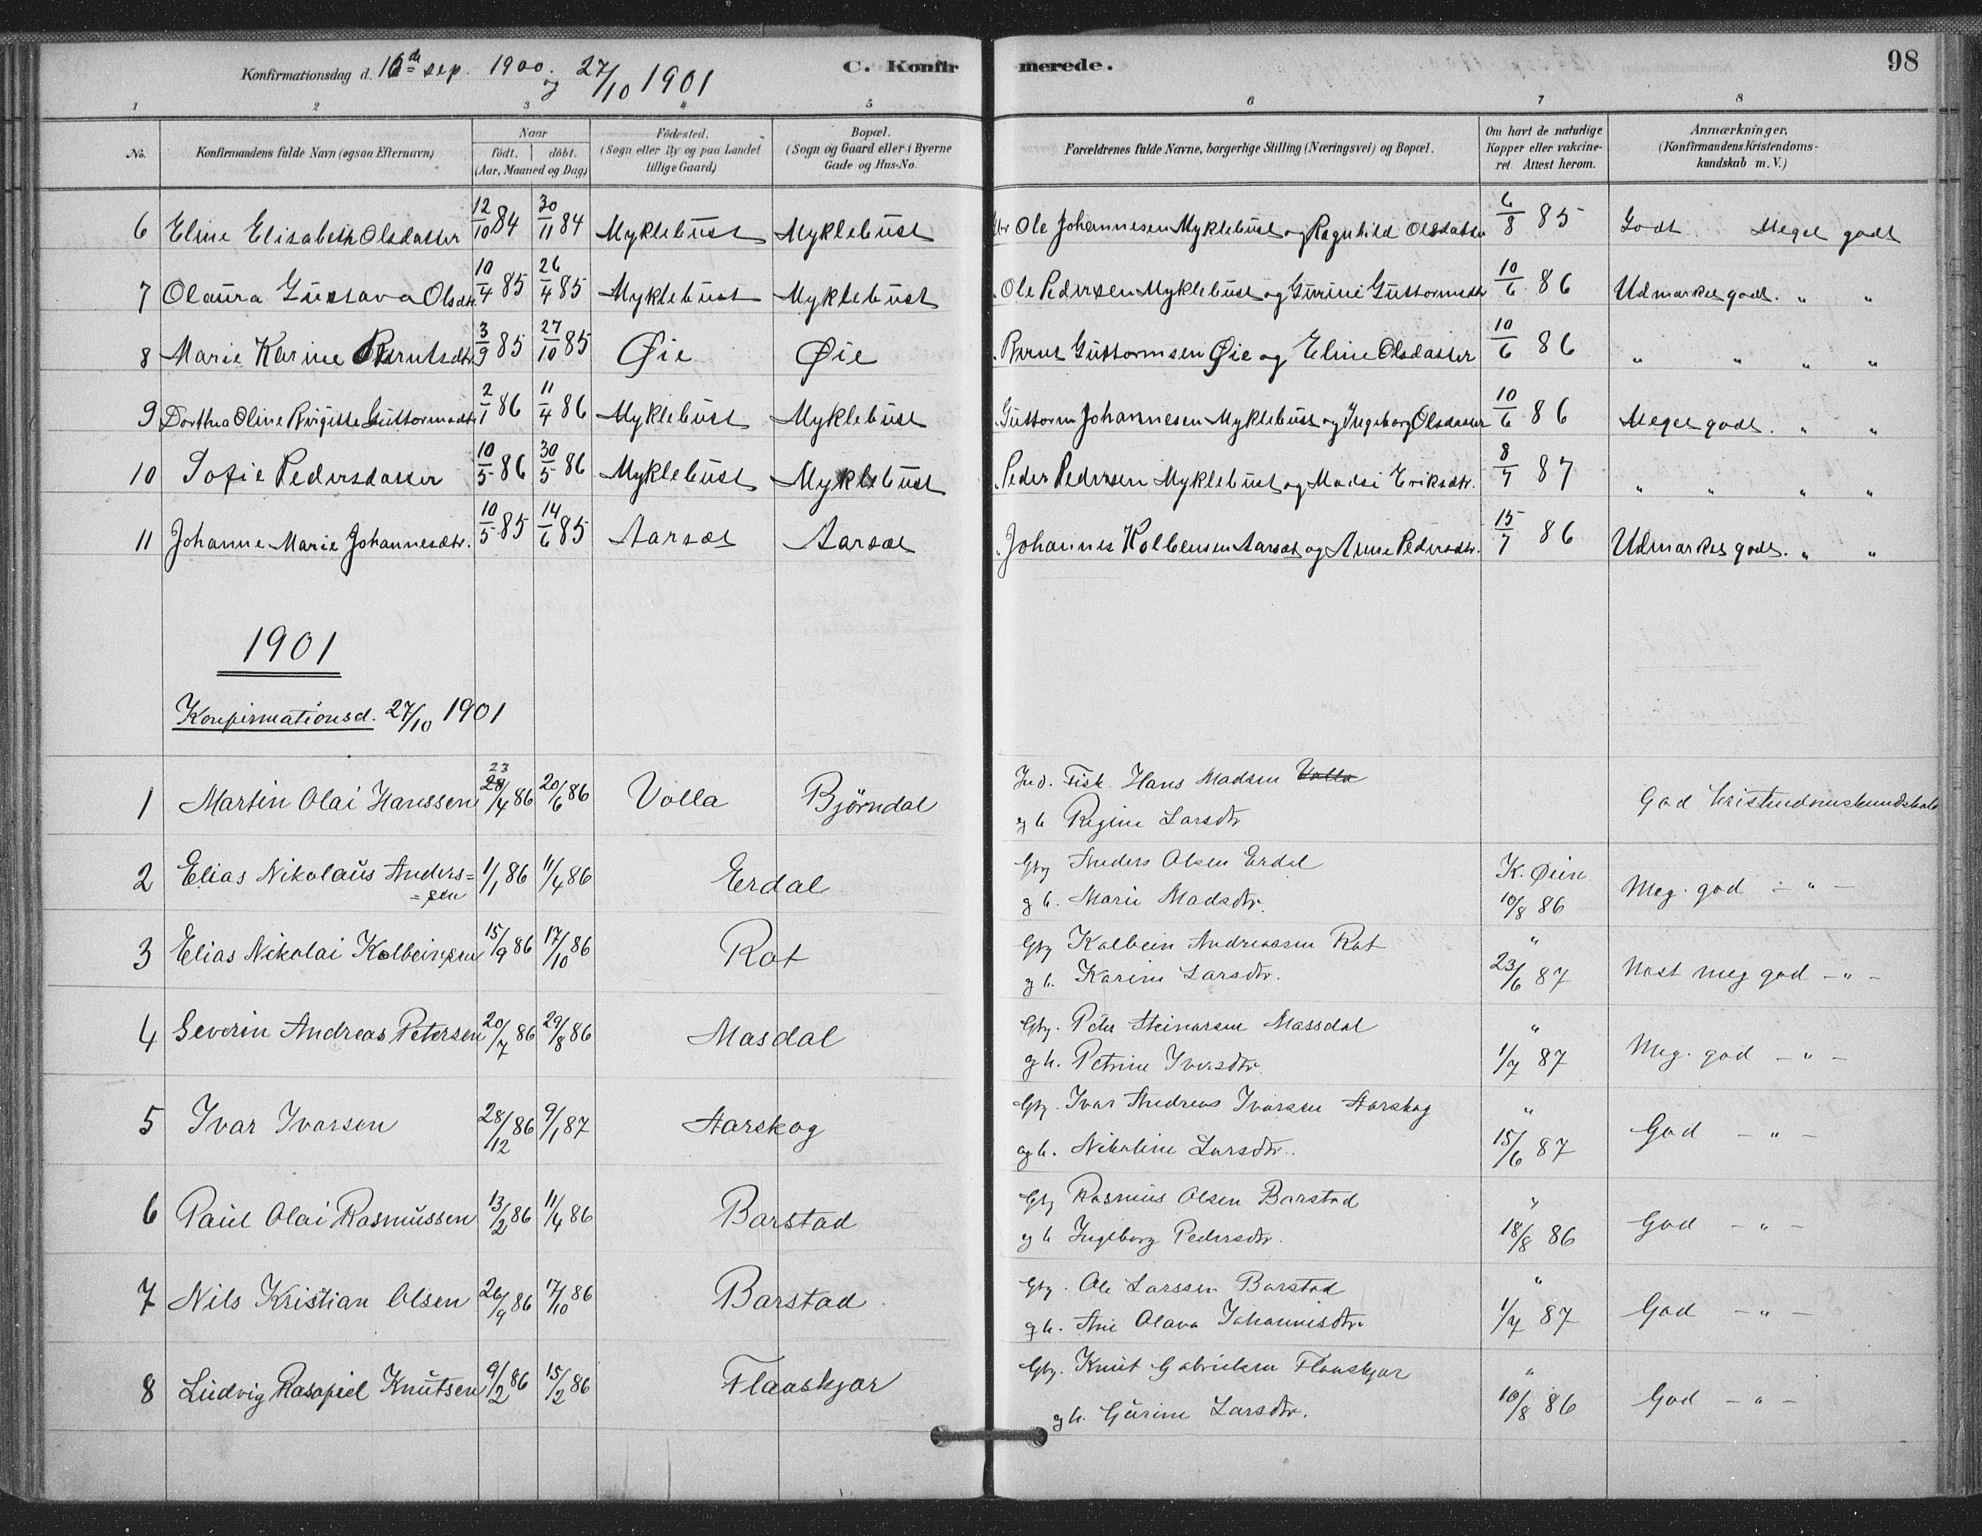 Konfirmationsdag d. 16de sep. 1900. og 27/10 1901 C. Konfirmerede. 98
1 2 3 4 5 6 7 8
No. Konfirmandens fulde Navn (ogsaa Efternavn) Naar födt. döbt. (Aar, Maaned og Dag) Födested. (Sogn eller By og paa Landet tillige Gaard) Bopæl. (Sogn og Gaard eller i Byerne Gade og Hus-No. Forældrenes fulde Navne, borgerlige Stilling (Næringsvei) og Bopæl. Om havt de naturlige Kopper eller vakcineret. Attest herom. Anmærkninger. (Konfirmandens Kristendomskundskab m. V.)
6 Eline Elisabeth Olsdatter 12/10 84 30/11 84 Myklebust Myklebust Ole Johannesen Myklebust og Ragnhild Olsdatter 6/8 85 Godt Meget godt
7 Olaura Gustava Olsdtr 10/4 85 26/4 85 Myklebust Myklebust Ole Pedersen Myklebust og Gurine Guttormsdtr 10/6 86 Udmærket godt. " "
8 Marie Karine Berntsdtr 3/9 85 27/10 85 Øie Øie Bernt Guttormsen Øie og Eline Olsdatter 10/6 86 " " " "
9 Dorthea Oline Birgitte Guttormsdtr 2/1 86 11/4 86 Myklebust Myklebust Guttorm Johannesen Myklebust og Ingeborg Olsdatter 10/6 86 Meget godt. " "
10 Sofie Pedersdatter 10/5 86 30/5 86 Myklebust Myklebust Peder Pedersen Myklebust og Madsi Eriksdtr. 8/7 87 " " " "
11 Johanne Marie Johannesdtr. 10/5 85 14/6 85 Aarsæt Aarsæt Johannes Kolbensen Aarsæt og Anne Pedersdtr. 15/7 86 Udmærket godt. " "
1901
Konfirmationsd. 27/10 1901
1 Martin Olai Hanssen 23/4 86 20/6 86 Volla Bjørndal Ind. Fisk. Hans Madsen Volla
og h. Regine Larsdtr God Kristendomskundskab
2 Elias Nikolaus Anders= 1/1 86 11/4 86 Erdal Gbr. Anders Olsen Erdal K. Øien
=sen og h. Marie Madsdtr. 10/8 86 Meg. god - " -
3 Elias Nikolai Kolbeinsen 15/9 86 17/10 86 Rot Gbr. Kolbein Andreassen Rot "
og h. Karine Larsdtr. 23/6 87 Næst meg god - " -
4 Severin Andreas Petersen 20/7 86 29/8 86 Masdal Gbr. Peter Steinarsen Massdal "
og h. Petrine Iversdtr. 1/7 87 Meg. god - " -
5 Ivar Ivarsen 28/12 86 9/1 87 Aarskog Gbr. Ivar Andreas Ivarsen Aarskog "
og h. Nikoline Larsdtr. 15/6 87 God - " -
6 Paul Olai Rasmussen 13/2 86 11/4 86 Barstad Gbr. Rasmus Olsen Barstad "
og h Ingeborg Pedersdtr. 18/8 86 God - " -
7 Nils Kristian Olsen 26/9 86 17/10 86 Barstad Gbr. Ole Larssen Barstad "
og h. Ane Olava Johannesdtr. 1/7 87 God - " -
8 Ludvig Rasapiel Knutsen 9/2 86 15/2 86 Flaaskjær Gbr. Knut Gabrielsen Flaaskjær "
og h. Gurine Larsdtr. 10/8 86 God - " -